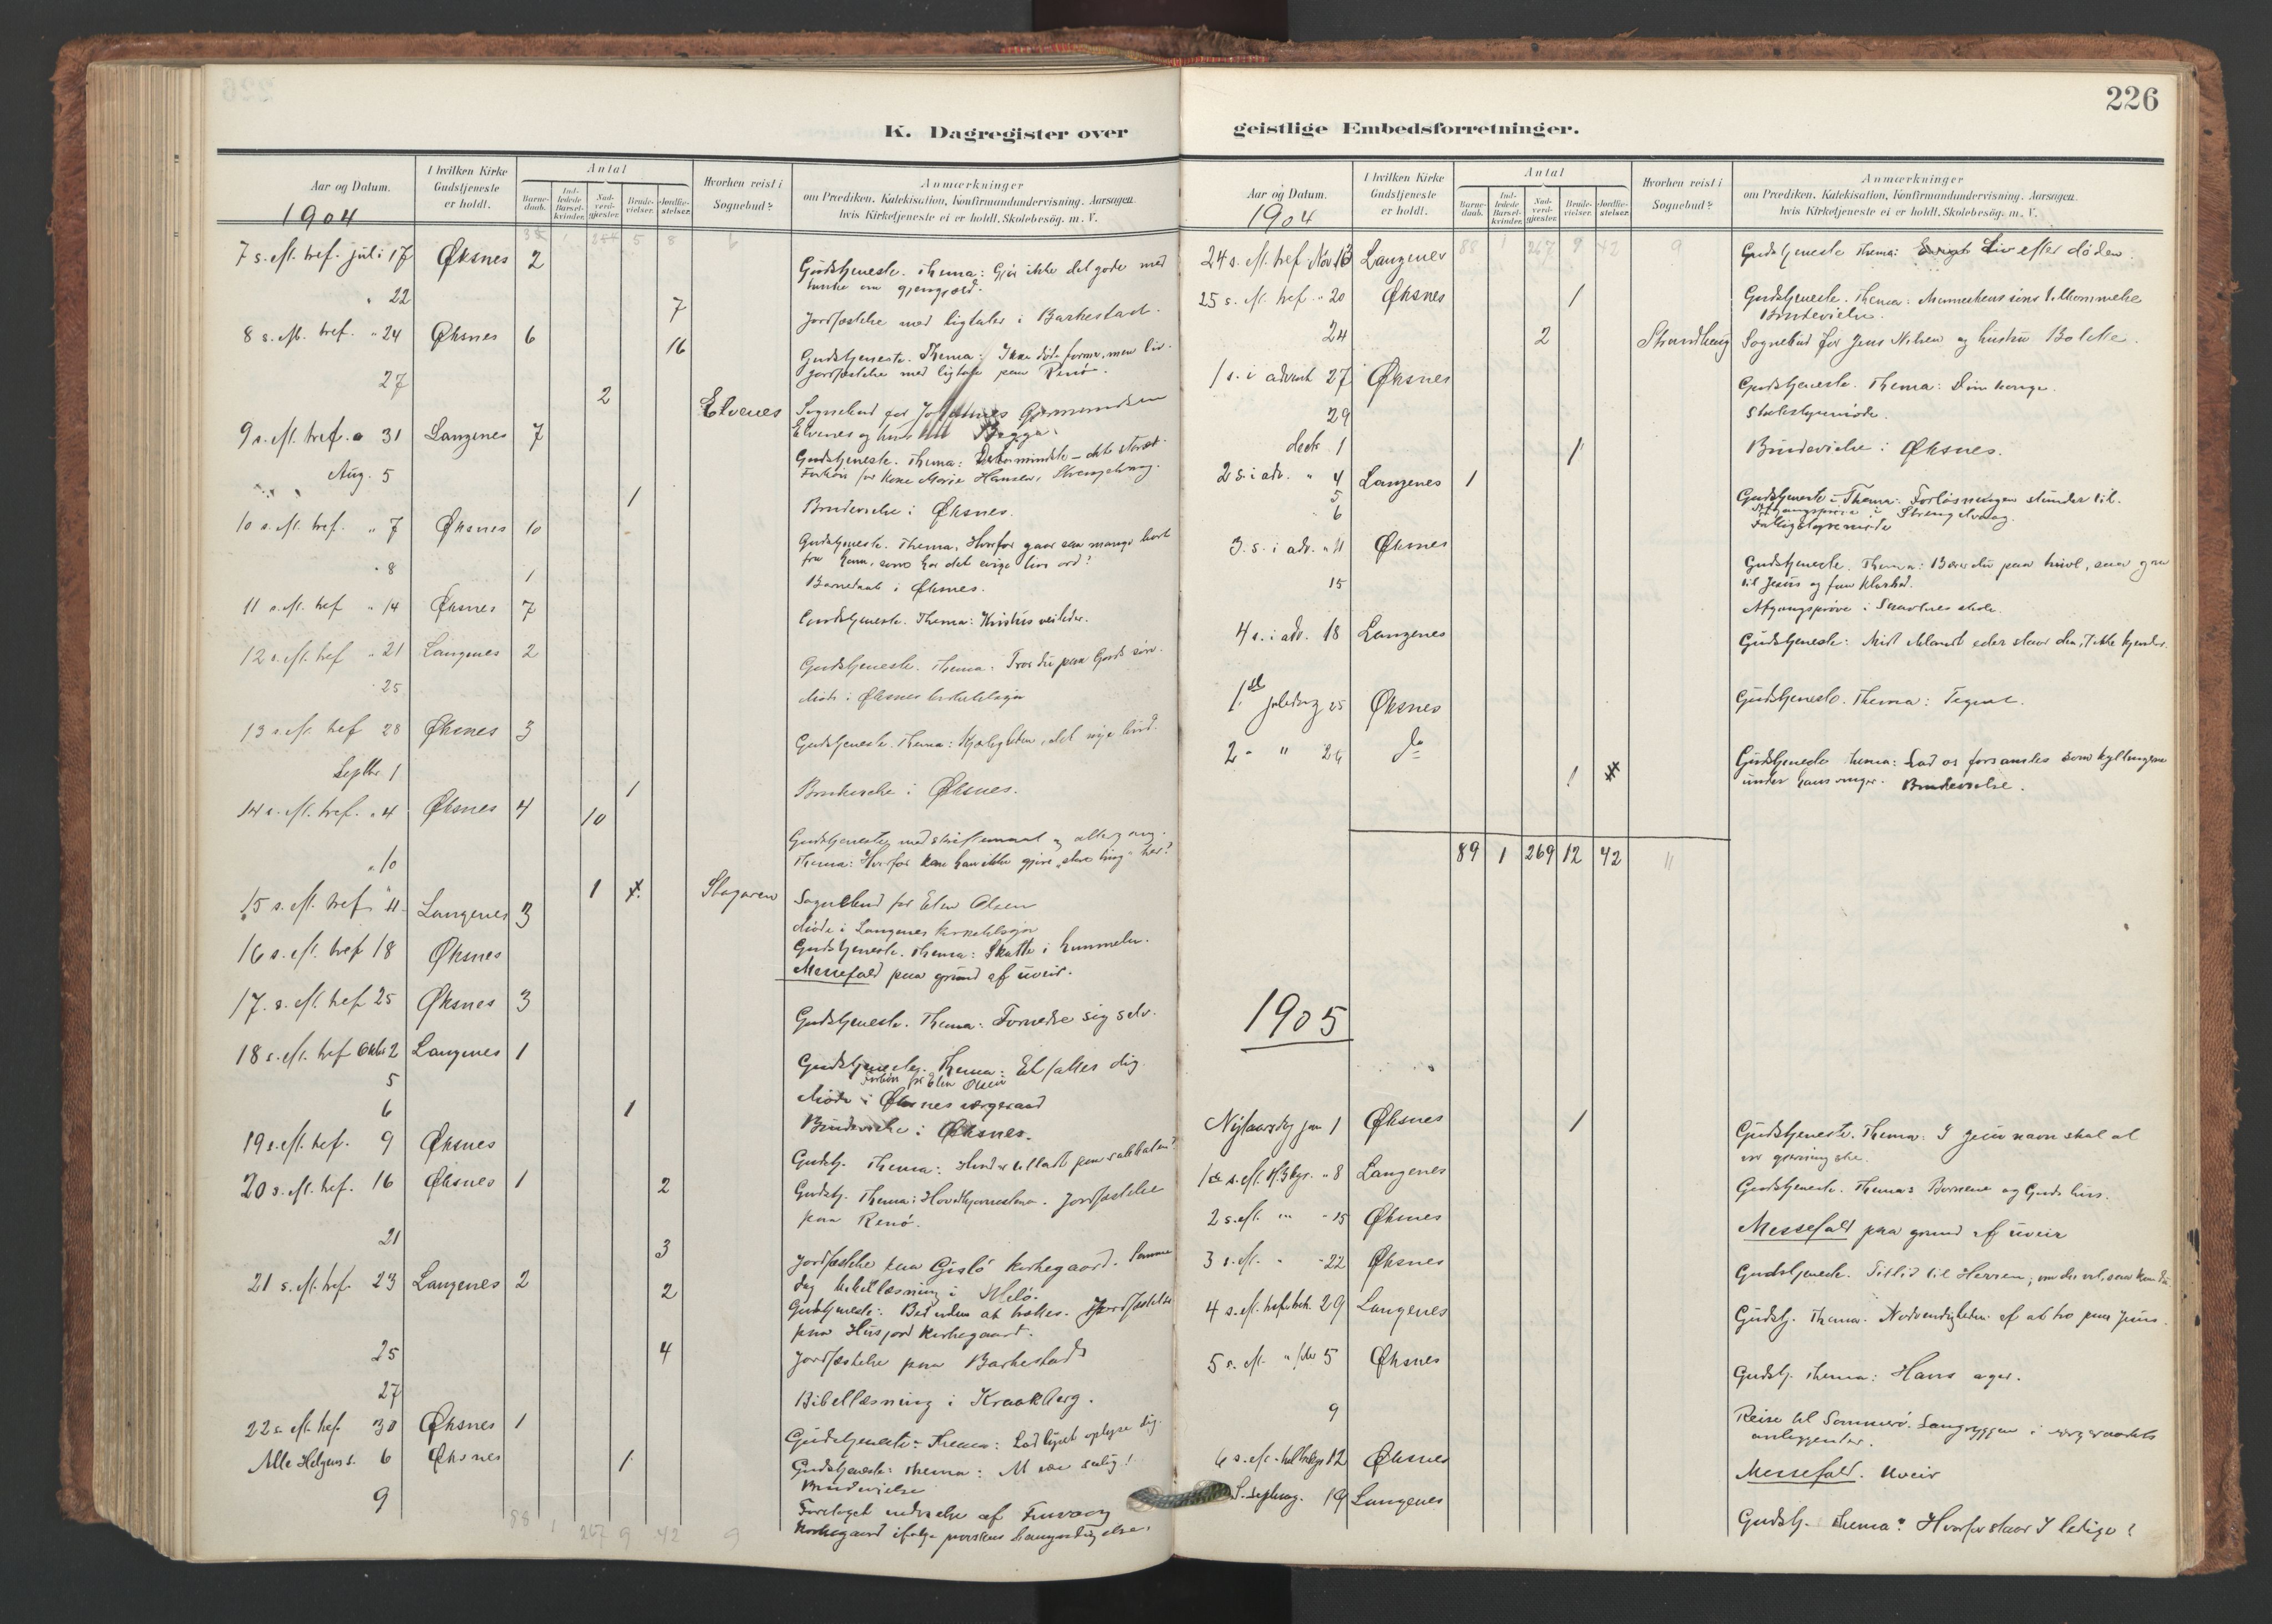 226
K. Dagregister over geistlige Embedsforretninger.
Aar og Datum.
I hvilken Kirke Gudstjeneste er holdt.
Antal
Barne-daab.
Ind-ledede Barsel-kvinder.
Nad-verd-gjester.
Brude-vielser.
Jordfæ-stelser.
Hvorhen reist i Sognebud?
Anmærkninger
om Prædiken, Katekisation, Konfirmandundervisning, Aarsagen
hvis Kirketjeneste ei er holdt, Skolebesög. m. V.
1904
7 s. eft. tref. juli 17 Øksnes 2 Gudstjeneste. Thema: Gjør ikke det gode med
tanke om gjengjæld.
" 22 7 Jordfæstelse med ligtaler i Barkestad.
8 s. eft. tref. " 24 Øksnes 6 16 Gudstjeneste. Thema: Ikke døde former, men liv.
Jordfæstelse med ligtale paa Renø.
27 2 Elvenes Sognebud for Johannes
Elvenes og
9 s. eft. tref. 31 Langenes 7 Gudstjeneste. Thema: Det mindste – det største.
Forbøn for Kone Marie Hansen, Strengelvaag.
Aug. 5 1 Brudevielse i Øksnes.
10 s. eft. tref. " 7 Øksnes 10 Gudstjeneste. Thema: Hvorfor gaar saa mange bort
fra ham, som har det evige livs ord?
" 8 1 Barnedaab i Øksnes.
11 s. eft. tref " 14 Øksnes 7 Gudstjeneste. Thema: Kristus
12 s. eft. tref " 21 Langenes 2 Gudstjeneste. Thema: Tror du paa Guds søn.
" 25 Møde i Øksnes
13 s. eft. tref 28 Øksnes 3 Gudstjeneste. Thema: Kjærligheden, det nye bud.
Septbr. 1 1 Brudevielse i Øksnes.
14 s. eft. tref. " 4 Øksnes 4 10 Gudstjeneste med skriftemaal og altergang.
Thema: Hvorfor kan han ikke gjøre "store ting" her?
" 10 1 Stagaren Sognebud for Elen Olsen
Møde i Langenes
15 s. eft. tref " 11 Langenes 3 Gudstjeneste. Thema: Skatte i himmelen.
16 s. eft. tref 18 Øksnes Messefald paa grund af uveir.
17. s. eft. tref 25 Øksnes 3 Gudstjeneste. Thema: Fornedre sig selv.
18 s. eft. tref Oktbr 2 Langenes 1 Gudstjeneste. Thema: Et fattes dig
Forbøn for Elen Olsen
5 Møde i Øksnes vergeraad
6 1 Brudevielse i Øksnes.
19 s. eft. tref. 9 Øksnes Gudstj. Thema: Hvad er tilladt paa sabbaten?
20 s. eft. tref. 16 Øksnes 1 2 Gudstj. Thema: Hovedhjørnestenen. Jordfæstelse
paa Renø.
21 3 Jordfæstelse paa Gislø Kirkegaard. Samme
dag bibellæsning i Melø.
21 s. eft. tref. 23 Langenes 2 2 Gudstjeneste: Bed uden at trættes. Jordfæstelse
paa Husjord Kirkegaard.
25 4 Jordfæstelse paa Barkestad
27 Bibellæsning i Kraakberg.
22 s. eft. tref. 30 Øksnes 1 Gudstjeneste. Thema: Lad lyset oplyse dig.
Alle Helgens s. 6 Øksnes 1 Gudstjeneste: Thema: At være salig!
Brudevielse
9 Foretaget indvielse af
Kirkegaard ifølge provstens bemyndigelse.
88 1 267 9 42 9
Aar og Datum.
I hvilken Kirke Gudstjeneste er holdt.
Antal
Barne-daab.
Ind-ledede Barsel-kvinder.
Nad-verd-gjester.
Brude-vielser.
Jordfæ-stelser.
Hvorhen reist i Sognebud?
Anmærkninger
om Prædiken, Katekisation, Konfirmandundervisning, Aarsagen
hvis Kirketjeneste ei er holdt, Skolebesög. m. V.
1904
88 1 267 9 42 9
24 s. eft. tref Nov 13 Langenes Gudstjeneste Thema: Liv efter døden.
25 s. eft. tref. " 20 Øksnes 1 Gudstjeneste. Thema: Menneskens søns tilkommelse
Brudevielse.
24 2 Strandhaug Sognebud for Jens Nilsen og hustru Bolette.
1 s. i advent 27 Øksnes Gudstjeneste. Thema: Din konge.
29 Skolestyremøde.
decbr. 1 1 Brudevielse i Øksnes.
2 s. i adv. " 4 Langenes 1 Gudstjeneste. Thema: Forløsningen stunder til.
5 Afgangsprøve i Strengelvaag.
6 Fattigstyremøde
3. s. i adv. " 11 Øksnes Gudstjeneste. Thema: Bærer du paa tvivl, saa gaa
til Jesus og faa klarhed.
15 Afgangsprøve i skole.
4 s. i adv. 18 Langenes Gudstjeneste: Midt iblandt eder staar den, I ikke kjender.
1.ste juledag 25 Øksnes Gudstjeneste. Thema: Tegnet.
2 " " 26 do 1 Gudstjeneste Thema: Lad os forsamles som kyllingerne
under hans vinger. Brudevielse.
89 1 269 12 42 11
1905
Nytaarsdag jan 1 Øksnes 1 Gudstjeneste. Thema: I Jesu navn skal al
vor gjerning ske.
1ste s. eft. H. 3 kgr. " 8 Langenes Gudstjeneste. Thema: Børnene og Guds hus.
2 s. eft. " " 15 Øksnes Messefald paa grund af uveir
3 s. eft. " " 22 Øksnes Gudstjeneste. Tillid til Herren; om du vil, saa kan du
4 s. eft. hel. tre k. 29 Langenes Gudstj. Thema. Nødvendigheden af at tro paa Jesus.
5 s. eft. " febr 5 Øksnes Gudstj. Thema: Hans ager.
9 Reise til Sommerø. Langryggen i vergeraadets
anliggender.
6 s. eft. 12 Øksnes Messefald. Uveir
S. septuag. 19 Langenes Gudstj. Thema: Hvorfor staar I ledige?